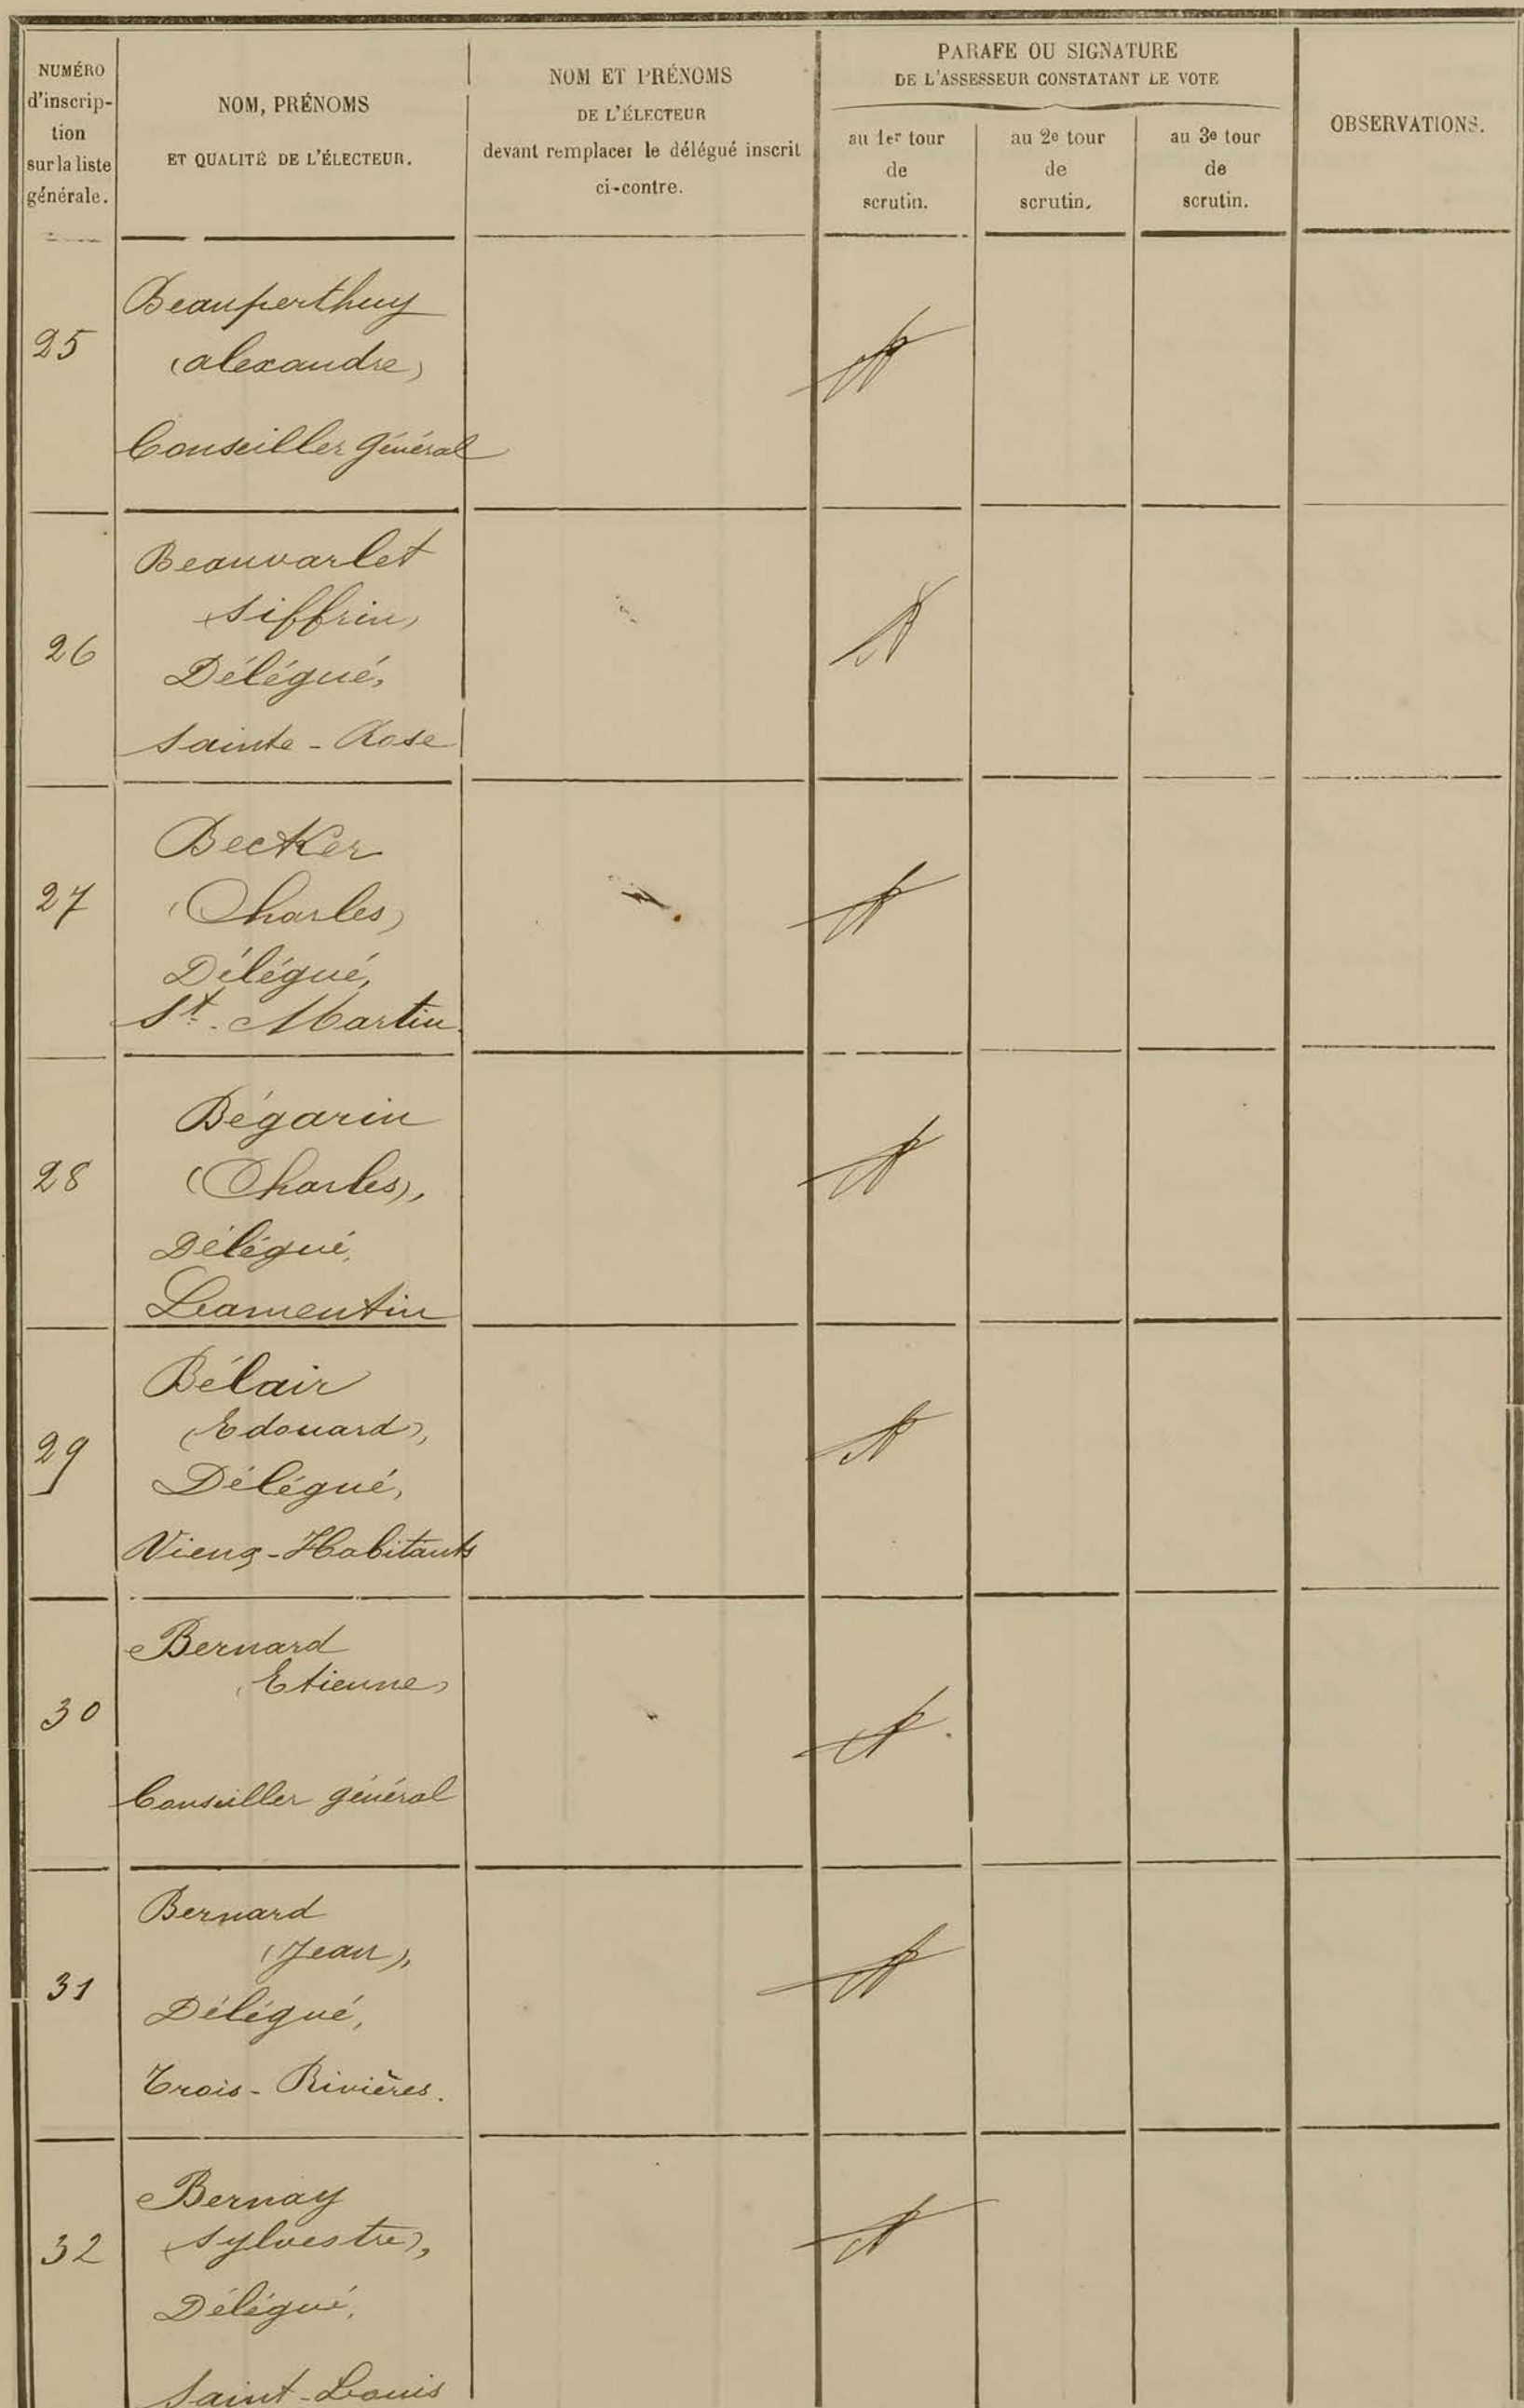 NUMÉRO
d'inscrip-
tion
sur la liste
générale.
NOM, PRÉNOMS
ET QUALITÉ DE L'ÉLECTEUR.
NOM ET PRÉNOMS
DE L'ÉLECTEUR
devant remplacer le délégué inscrit
ci-contre.
PARAFE OU SIGNATURE
DE L'ASSESSEUR CONSTATANT LE VOTE
au 1er tour
de
scrutin.
au 2e tour
de
scrutin.
au 3e tour
de
scrutin.
OBSERVATIONS.
25
Beauperthuy
(alexandre)
Conseiller Général
26
Beauvarlet
(Siffrin)
Délégué,
Sainte-Rose
27
Becker
(Charles)
Délégué,
St. Martin
28
Bégarin
(Charles),
Délégué,
Lamentin
29
Bélair
(Edouard),
Délégué,
Vieux-Habitants
30
Bernard
(Etienne)
Conseiller général
31
Bernard
(Jean),
Délégué,
Trois-Rivières.
32
Bernay
(Sylvestre),
Délégué,
Saint-Louis